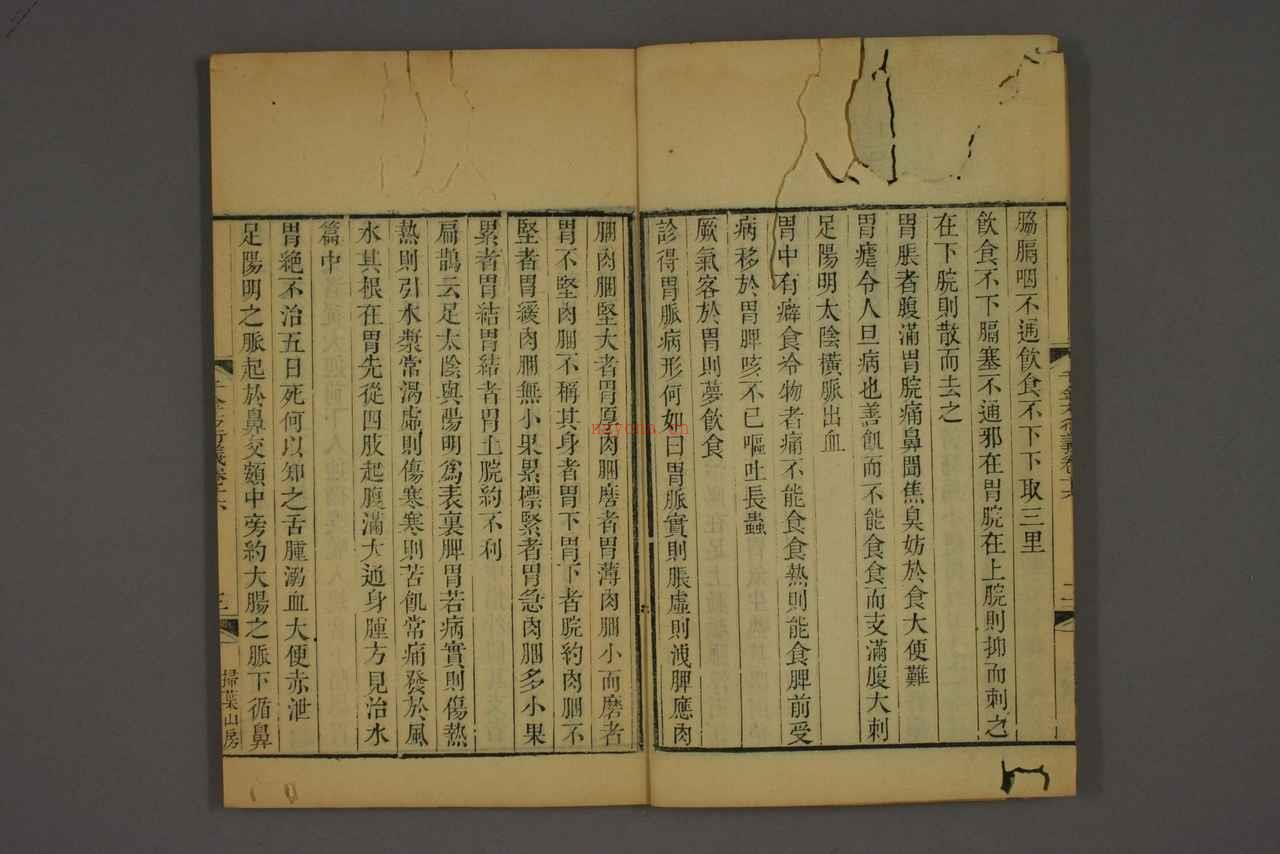 脇膈咽不通飲食不下下取三里
飲食不下膈塞不通邪在胃脘在上脘則抑而刺之
在下脘則散而去之
胃脹者腹滿胃脘痛鼻聞焦臭妨於食大便難
胃瘧令人旦病也善飢而不能食食而支滿腹大刺
足陽明太陰橫脈出血
胃中有癖食冷物者痛不能食食熱則能食脾前受
病移於胃脾咳不已嘔吐長蟲
厥氣客於胃則夢飲食
診得胃脈病形何如曰胃脈實則脹虛則洩脾應肉
膕肉膕堅大者胃厚肉膕麽者胃薄肉膕小而麽者
胃不堅肉膕不稱其身者胃下胃下者脘約肉膕不
堅者胃緩肉膕無小果累標緊者胃急肉膕多小果
累者胃結胃結者胃上脘約不利
扁鵲云足太陰與陽明爲表裏脾胃若病實則傷熱
熱則引水漿常渴虛則傷寒寒則苦飢常痛發於風
水其根在胃先從四肢起腹滿大通身腫方見治水
篇中
胃絶不治五日死何以知之舌腫溺血大便赤泄
足陽明之脈起於鼻交頞中旁約大腸之脈下循鼻
千金方衍義卷十六
三
掃葉山房